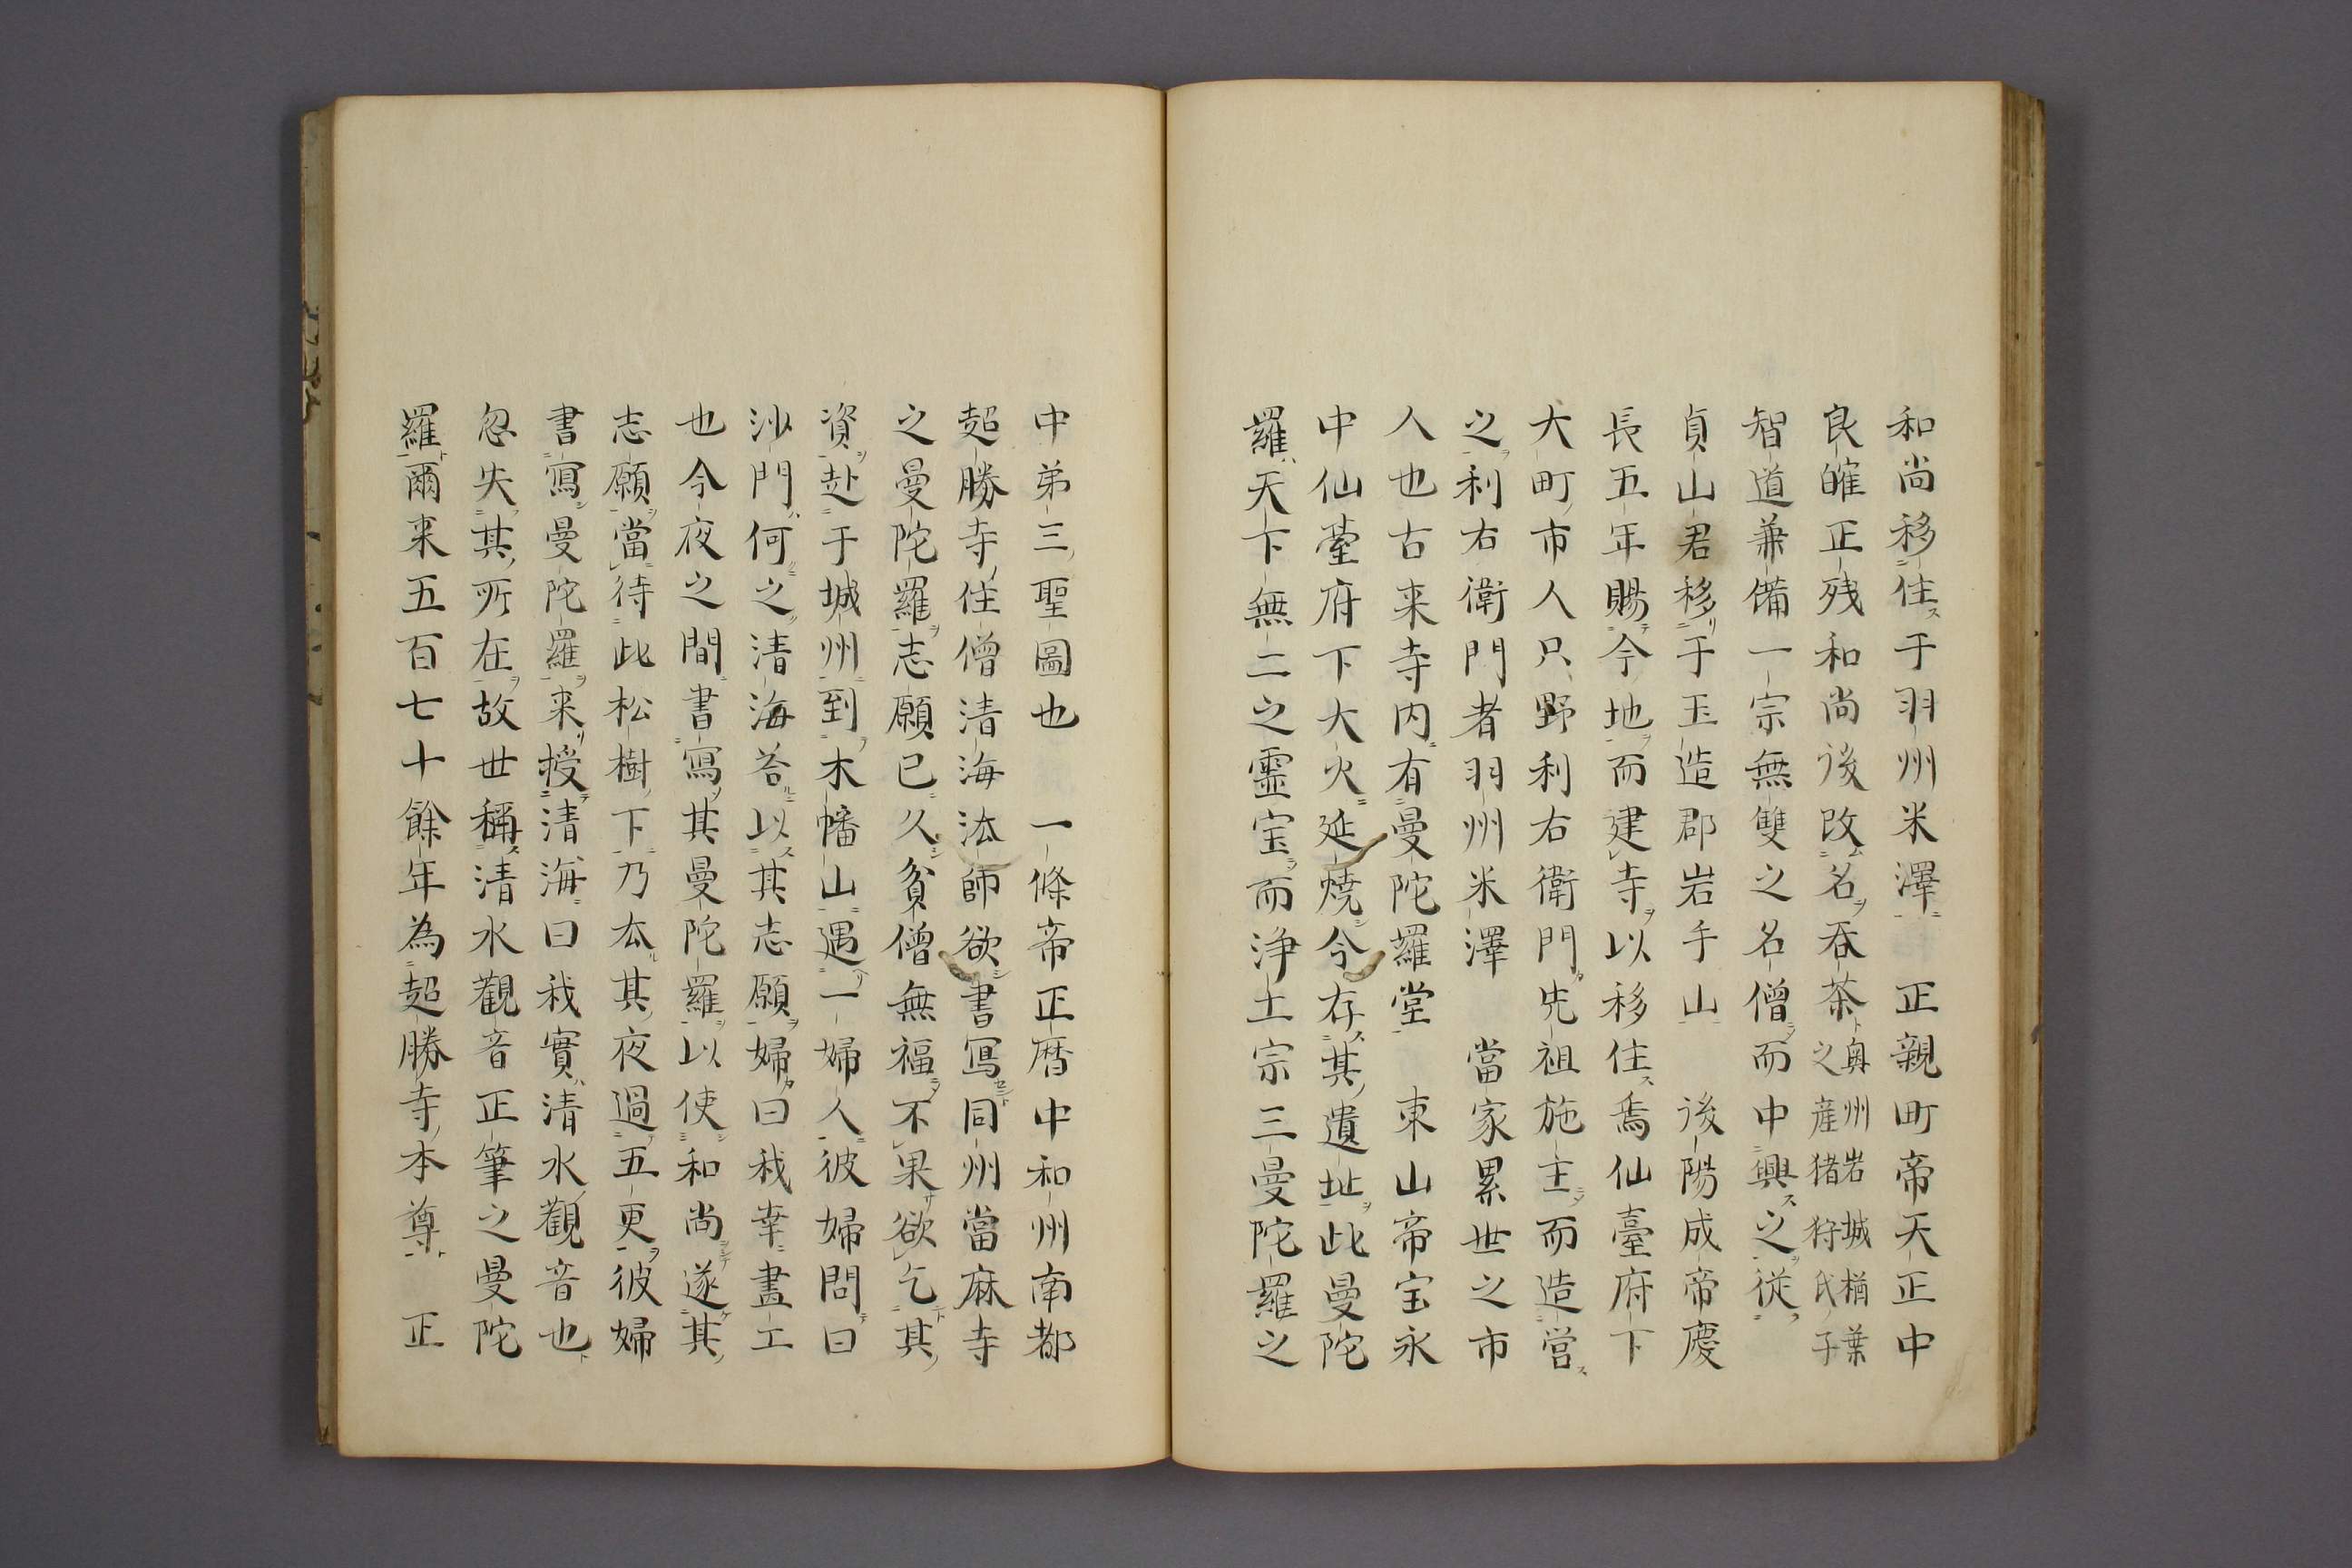 和尚移住于羽州米澤　正親町帝天正中
良㬦正残和尚後改名吞荼奥州岩城楢葉之産猪狩氏子
智道兼備一宗無雙之名僧而中興之従
貞山君移于玉造郡岩手山　後陽成帝慶
長五年賜今地而建寺以移住焉仙臺府下
大町市人只野利右衛門先祖施主而造営
之利右衛門者羽州米澤　當家累世之市
人也古来寺内有曼陀羅堂　東山帝宝永
中仙䑓府下大火延焼今存其遺址此曼陀
羅天下無二之靈宝而浄土宗三曼陀羅之
中第三聖圖也　一條帝正暦中和州南都
超勝寺住僧清海法師欲書寫同州當麻寺
之曼陀羅志願已久貧僧無福不果欲乞其
資赴于城州到木幡山遇一婦人彼婦問曰
沙門何之清海荅以其志願婦曰我幸畫工
也今夜之間書寫其曼陀羅以使和尚遂其
志願當待此松樹下乃厺其夜過五更彼婦
書寫曼陀羅来授清海曰我實清水觀音也
忽失其所在故世稱清水觀音正筆之曼陀
羅爾来五百七十餘年為超勝寺本尊　正